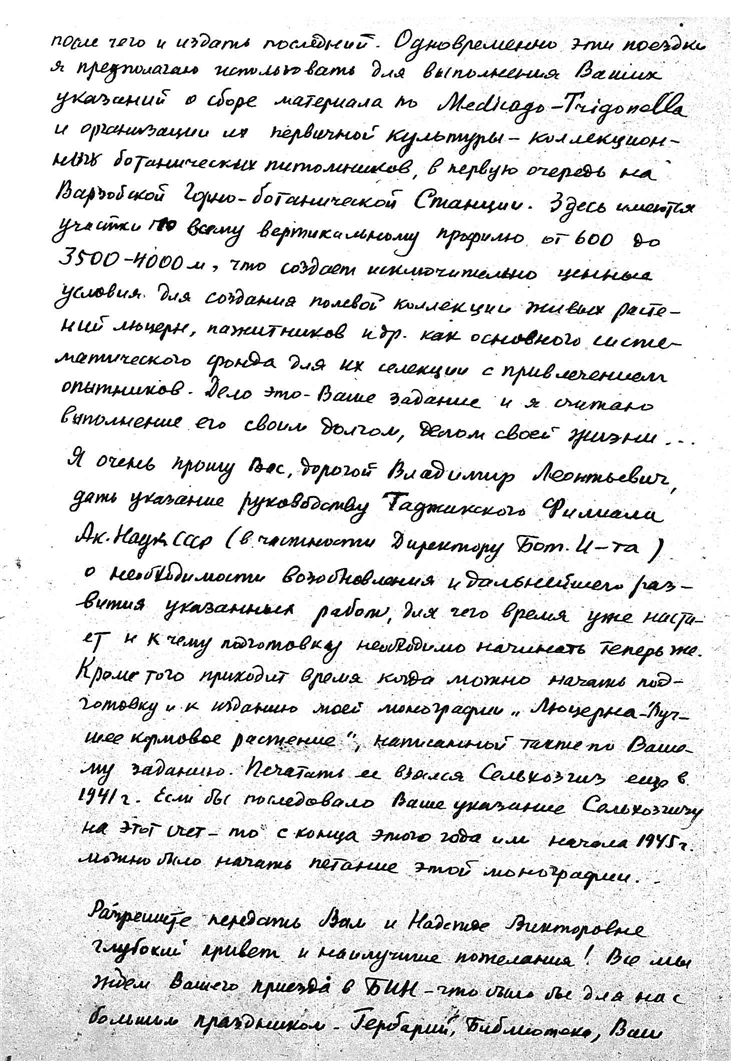 после чего и издать последний. Одновременно эти поездки
я предполагаю использовать для выполнения Ваших
указаний о сборе материала по Medicago-Trigonella
и организации их первичной культуры – коллекцион-
ных ботанических питомников, в первую очередь на
Варзобской Горно-ботанической Станции. Здесь имеются
участки по всему вертикальному профилю от 600 до
3500-4000 м, что создает исключительно ценные
условия для создания полевой коллекции живых расте-
ний люцерн, пажитников и др. как основного систе-
матического фонда для их селекции с привлечением
опытников. Дело это - Ваше задание и я считаю
выполнение его своим долгом, делом своей жизни...
Я очень прошу Вас, дорогой Владимир Леонтьевич,
дать указание руководству Таджикского Филиала
Ак. Наук СССР (в частности Директору Бот. И-та)
о необходимости возобновления и дальнейшего раз-
вития указанных работ, для чего время уже наста-
ет и к чему подготовку необходимо начинать теперь же.
Кроме того приходит время когда можно начать под-
готовку и к изданию моей монографии „Люцерна-луч-
шее кормовое растение", написанной также по Ваше-
му заданию. Печатать ее взялся Сельхозгиз еще в
1941 г. Если бы последовало Ваше указание Сельхозгизу
на этот счет – то с конца этого года или начала 1945 г.
можно было начать печатание этой монографии...
Разрешите передать Вам и Надежде Викторовне
глубокий привет и наилучшие пожелания! Все мы
ждем Вашего приезда в БИН – что было бы для нас
большим праздником - Гербарий, Библиотека, Ваш